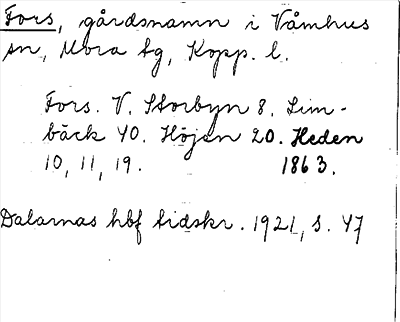 Fors, gårdsnamn i Våmhus
sn, Mora tg, Kopp. l.
Fors. V. Storbyn 8. Lim-
bäck 40. Höjen 20. Heden
10, 11, 19. 1863.
Dalarnas hbf tidskr. 1921, s. 47